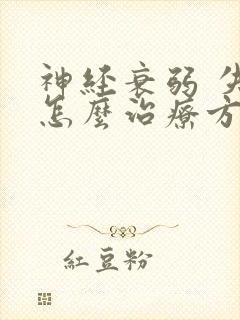 神経衰弱
怎麼治療方
紅豆粉